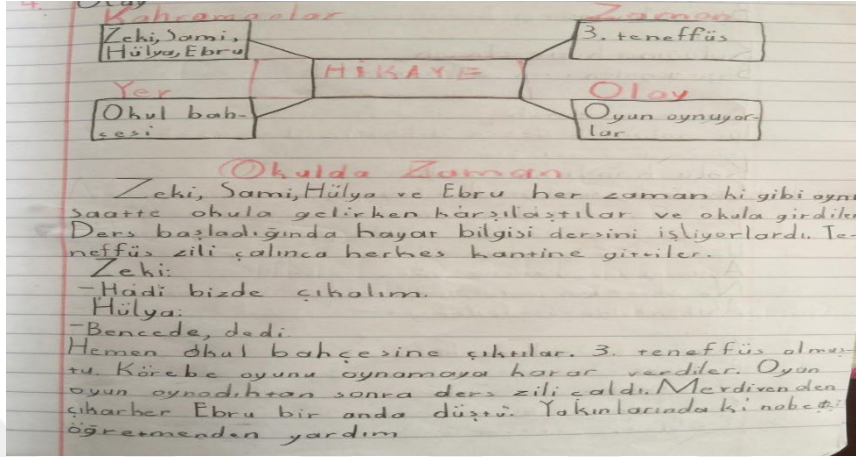 4. Olay
Kahramanlar
Zaman
Zeki, Sami,
Hülya, Ebru
3. teneffüs
HİKAYE
Yer
Olay
Okul bah-
çesi
Oyun oynuyor-
lar
Okulda Zaman
Zeki, Sami, Hülya ve Ebru her zaman ki gibi aynı
saatte okula gelirken karşılaştılar ve okula girdiler
Ders başladığında hayat bilgisi dersini işliyorlardı. Te-
neffüs zili çalınca herkes kantine gittiler.
Zeki:
-Hadi bizde çıkalım.
Hülya:
-Bencede, dedi.
Hemen okul bahçesine çıktılar. 3. teneffüs olmuş-
tu. Körebe oyunu oynamaya karar verdiler. Oyun
oyun oynadıktan sonra ders zili çaldı. Merdivenden
çıkarker Ebru bir anda düştü. Yakınlarında ki nöbetçi
öğretmenden yardım